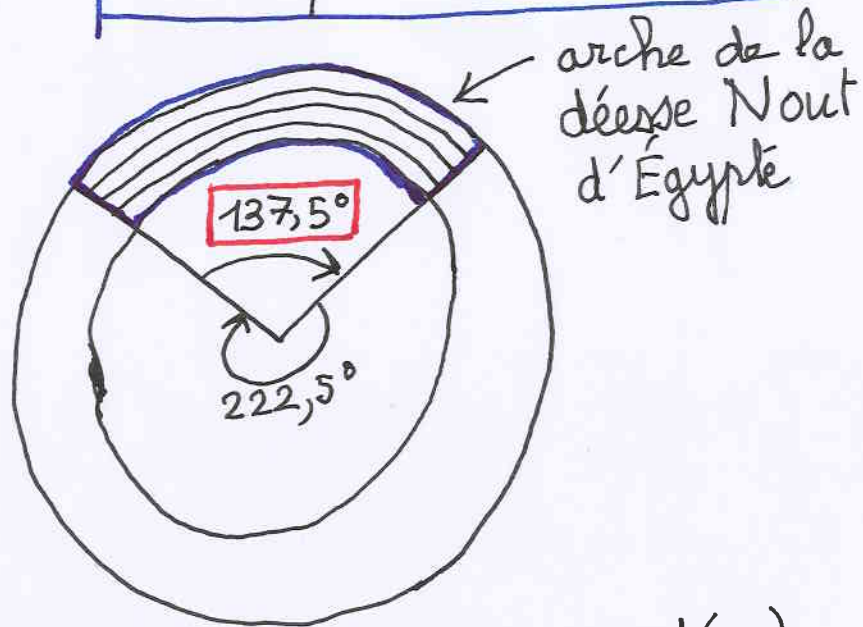 arche de la
déesse Nout
d'Égypte
137,5°
222,5°